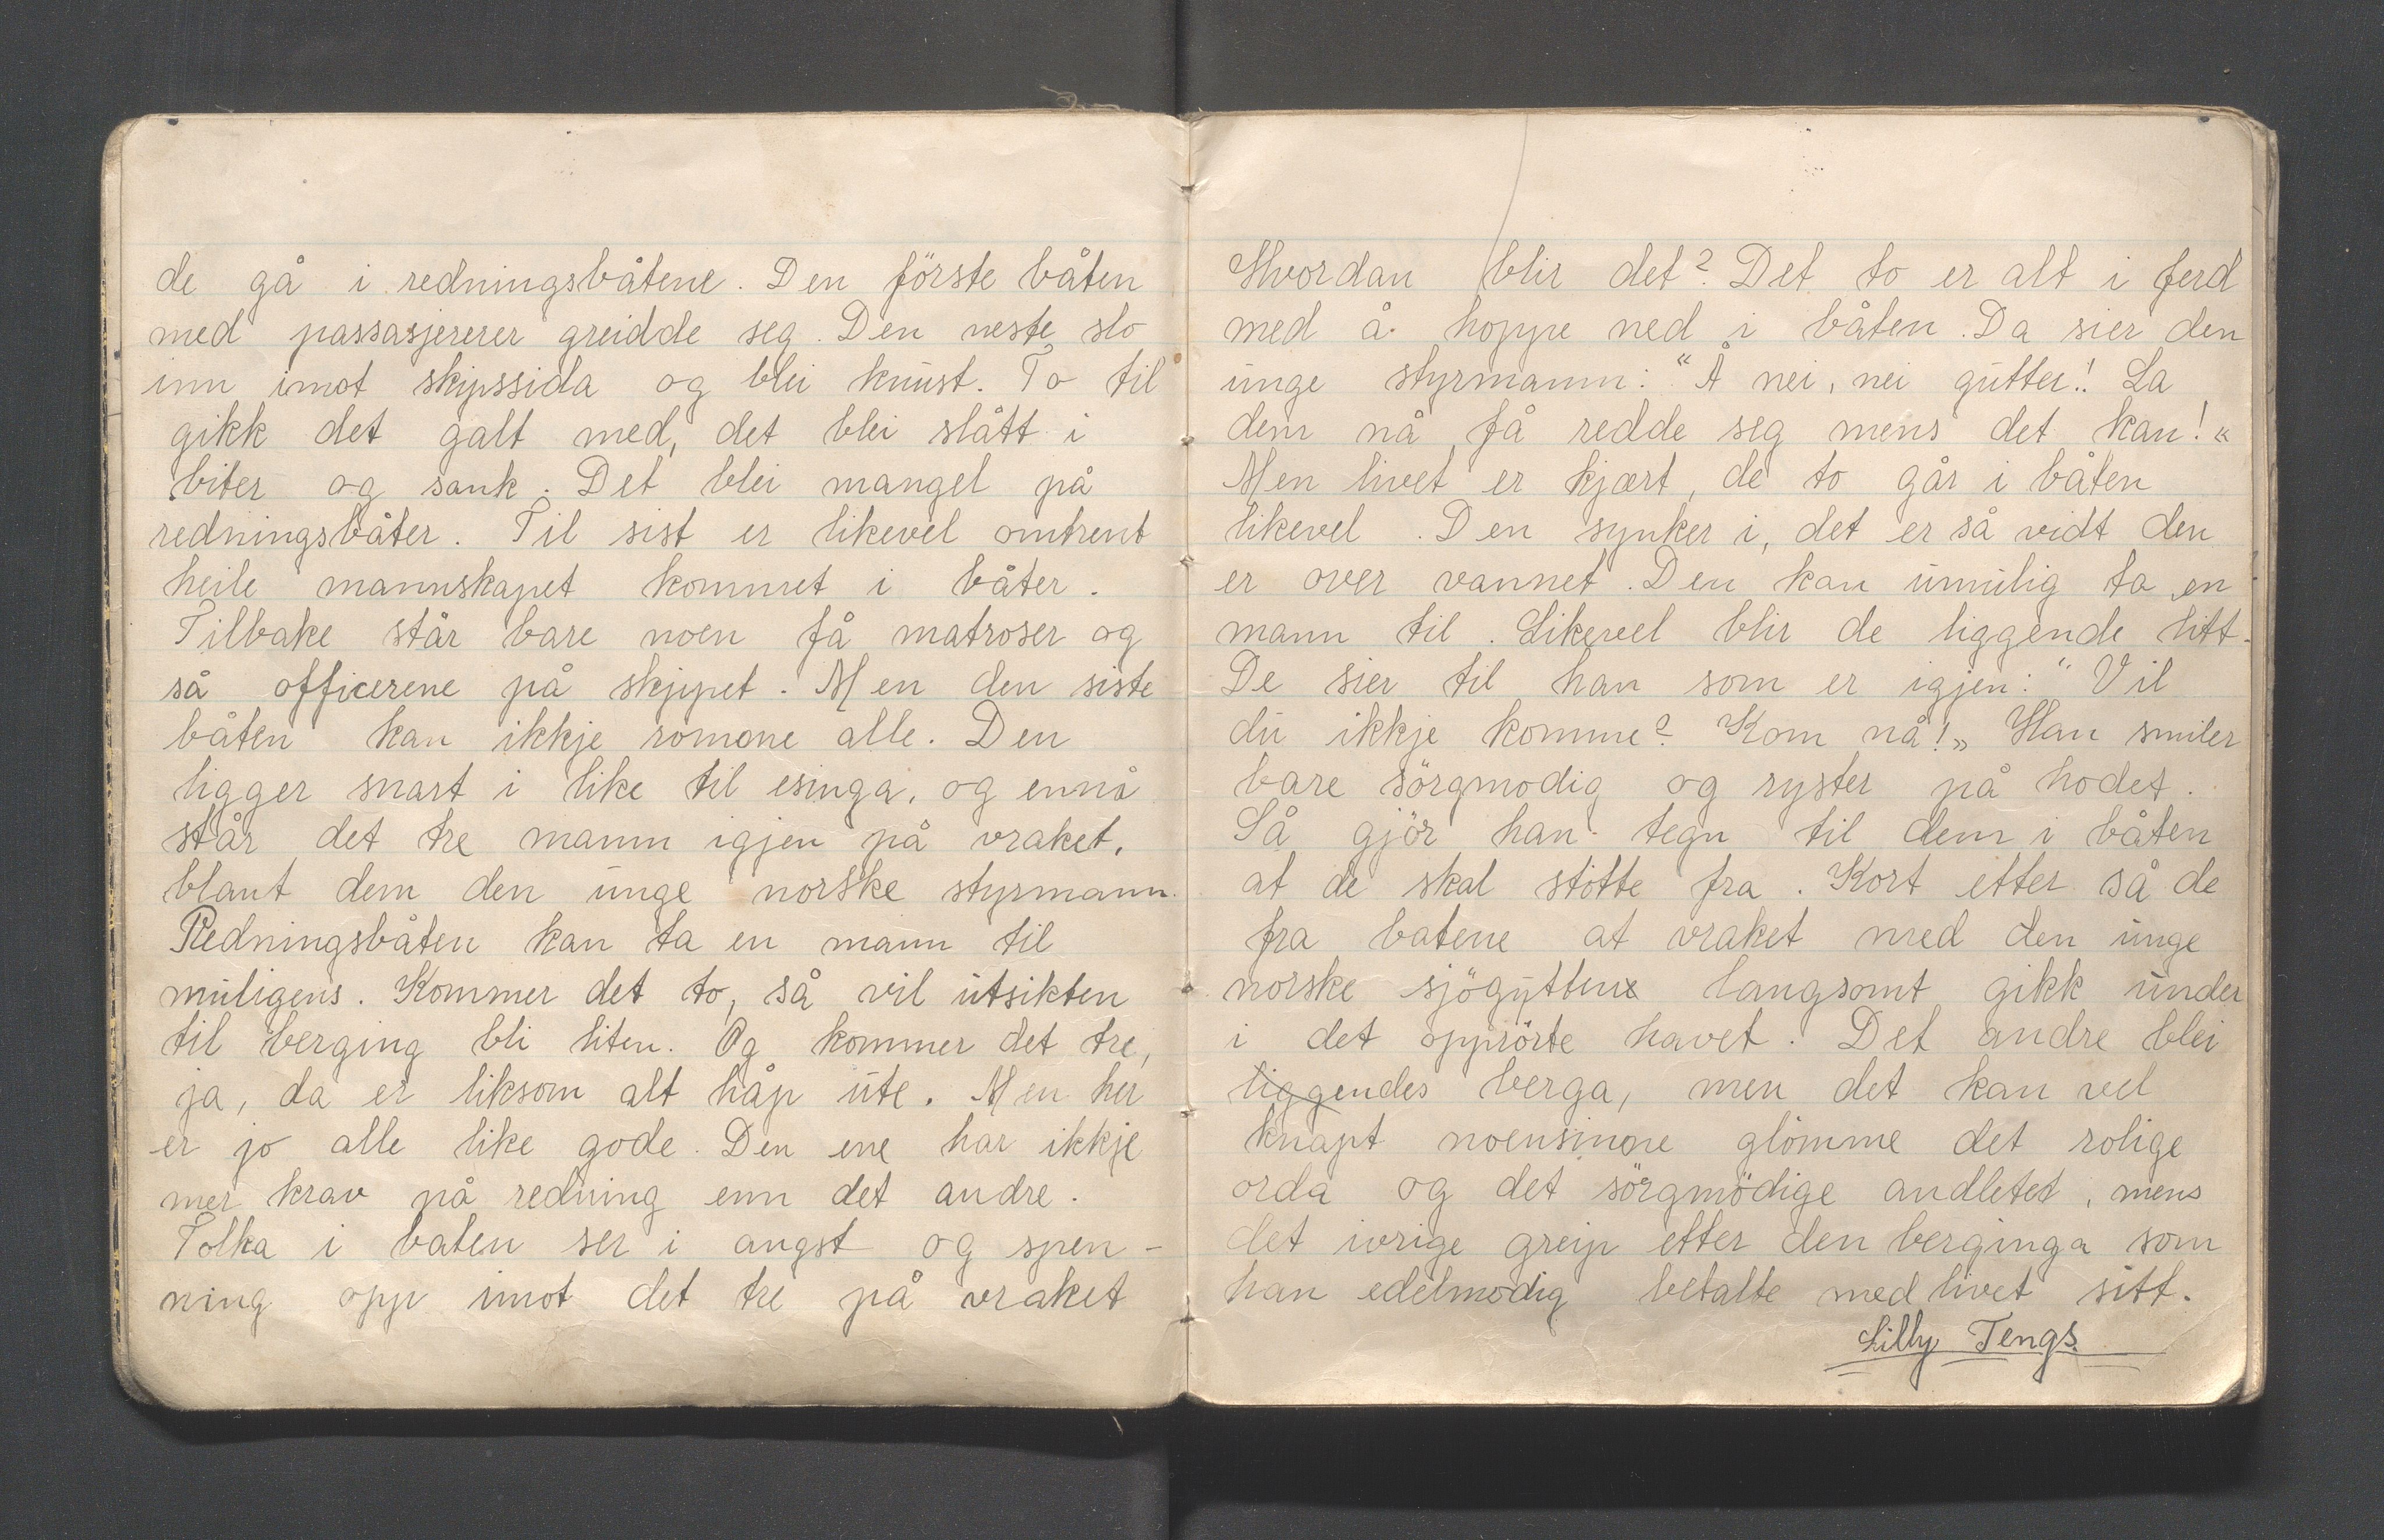 de gå i redningsbåtene. Den förste båten
med passasjererer greidde seg. Den neste slo
inn imot skipssida og blei knust. To til
gikk det galt med, det blei slått i
biter og sank. Det blei mangel på
redningsbåter. Til sist er likevel omtrent
heile mannskapet kommet i båter.
Tilbake står bare noen få matroser og
så officerene på skippet. Men den siste
båten kan ikkje romme alle. Den
ligger snart i like til esinga, og ennå
står det tre mann igjen på vraket,
blant dem den unge norske styrmann.
Redningsbåten kan ta en mann til
muligens. Kommer det to, så vil utsikten
til berging bli liten. Og kommer det tre,
ja, da er liksom alt håp ute. Men her
er jo alle like gode. Den ene har ikkje
mer krav på redning enn det andre.
Folka i baten ser i angst og spen-
ning opp imot det tre på vraket
Hvordan blir det? Det to er alt i ferd
med å hoppe ned i båten. Da sier den
unge styrmann: "Å nei, nei gutter! La
dem nå få redde seg mens det kan!"
Men livet er kjært, de to går i båten
likevel. Den synker i, det er så vidt den
er over vannet. Den kan umulig ta en
mann til. Likevel blir de liggende litt.
De sier til han som er igjen: "Vil
du ikkje komme? Kom nå!" Han smiler
bare sörgmodig og ryster på hodet.
Så gjör han tegn til dem i båten
at de skal stötte fra. Kort etter så de
fra batene at vraket med den unge
norske sjögutten langsomt gikk under
i det opprörte havet. Det andre blei
liggendes berga, men det kan vel
knapt noensinne glömme det rolige
orda og det sörgmödige andletet, mens
det ivrige greip etter den berginga som
han edelmodig betalte med livet sitt.
Lilly Tengs.